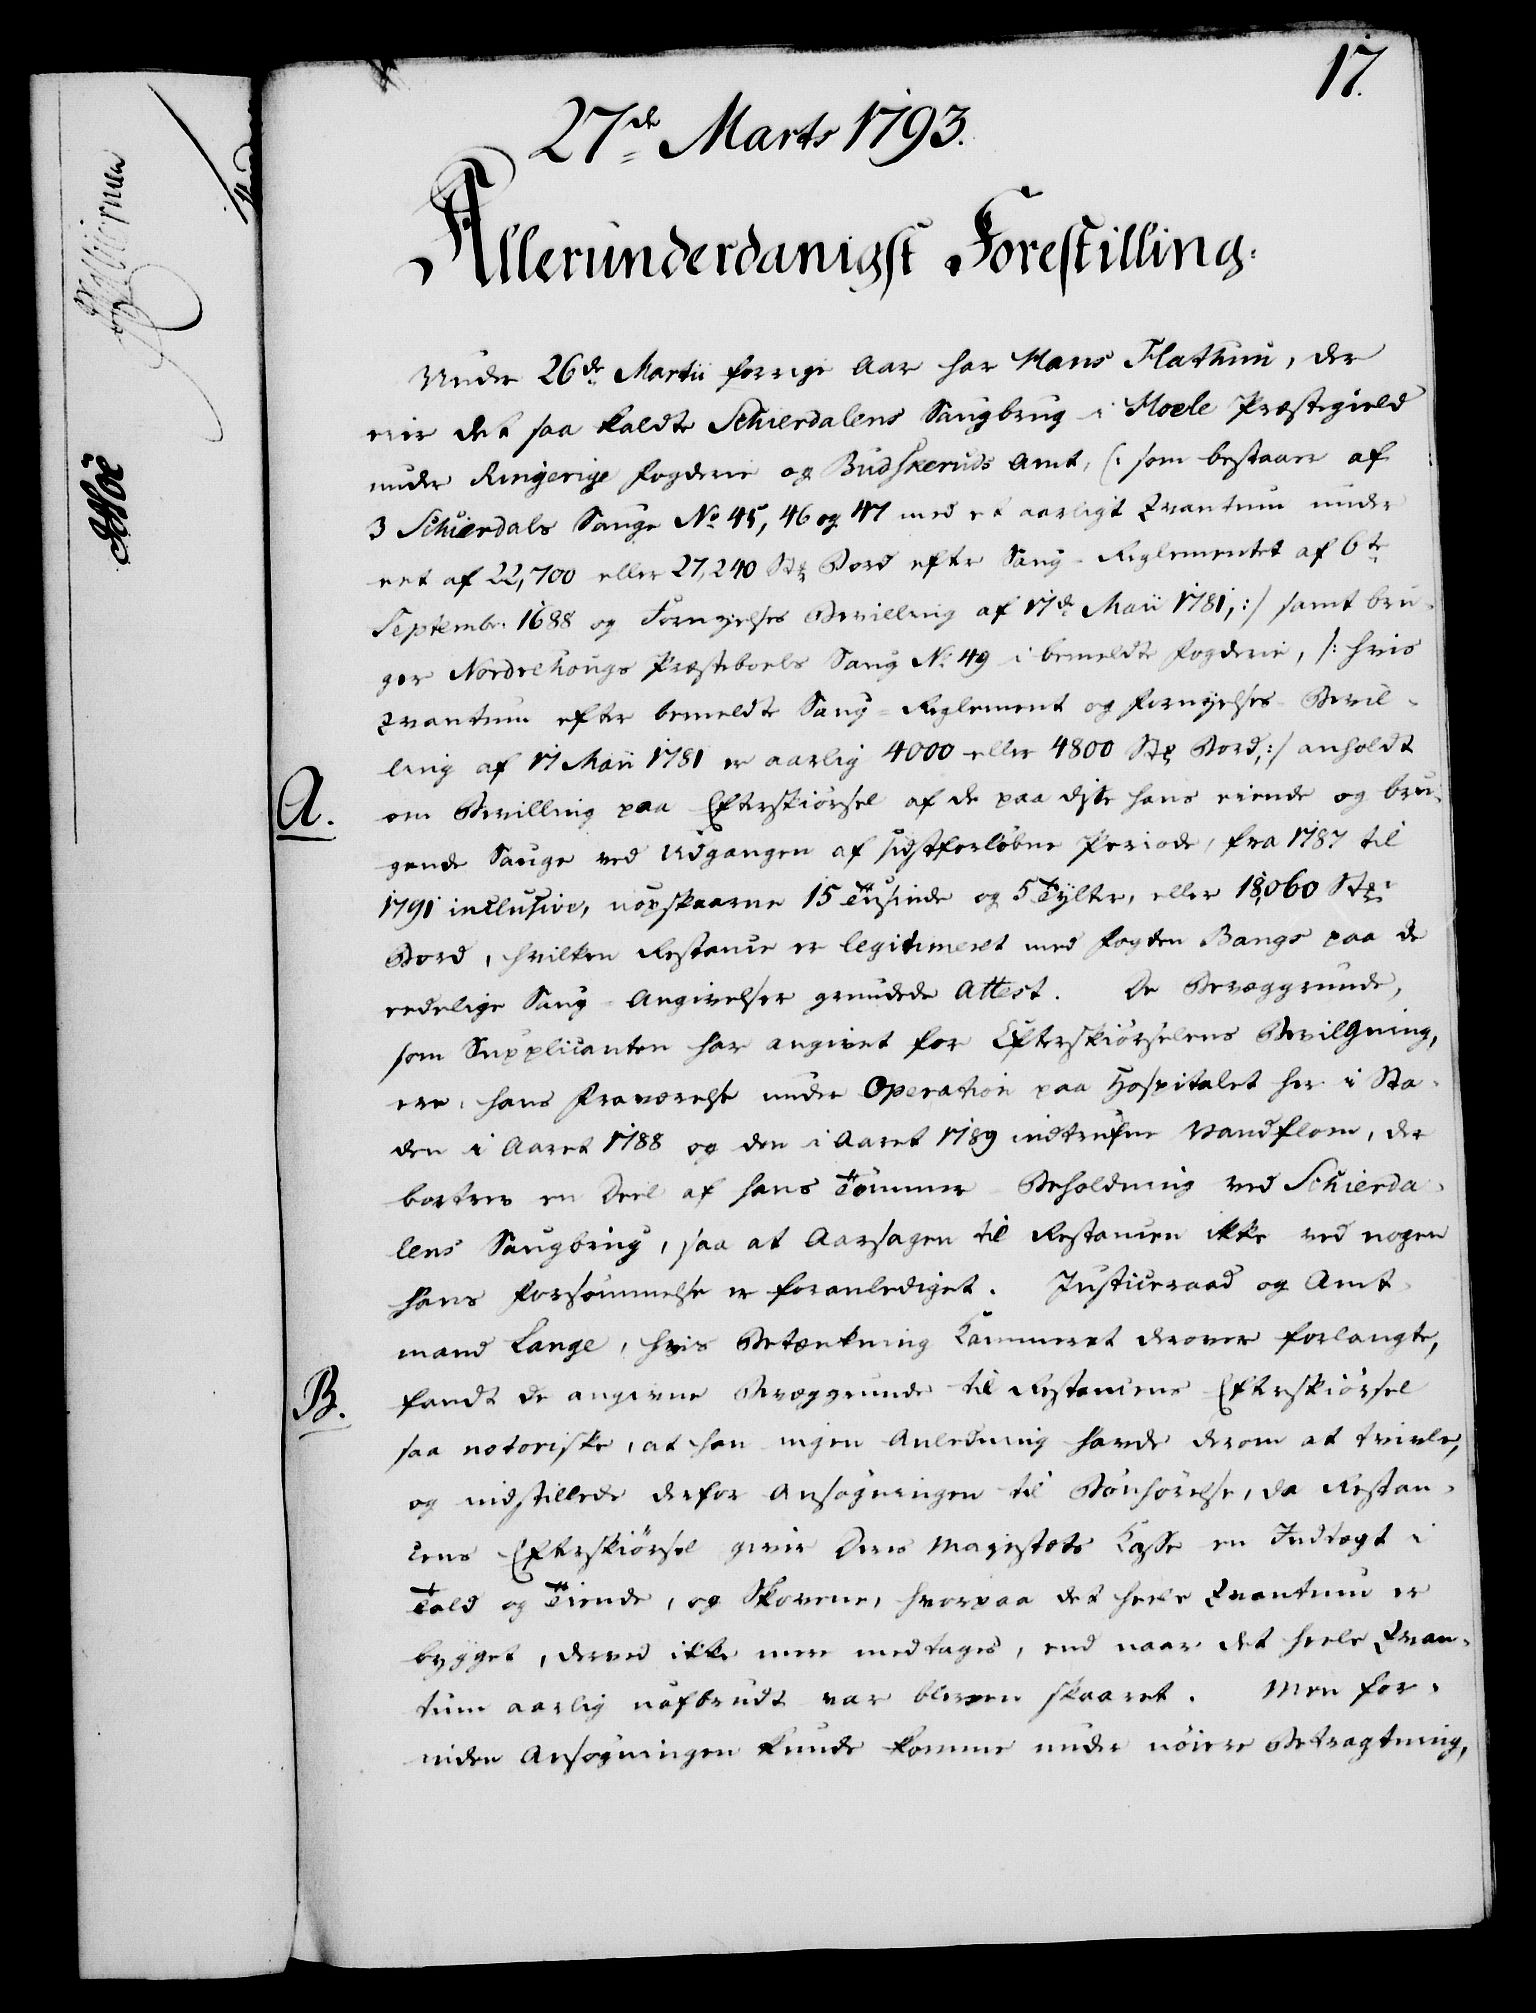 17.
27de Marts 1793.
Allerunderdanigst Forestilling.
Under 26de Martii forrige Aar har Hans Flathuu, der
eier det saa kaldte Schierdalens Saugbrug i Hoele Præstegield
under Ringerige Fogderie og Budskeruds Amt, (: som bestaaer af
3 Schierdals Sauge No 45, 46 og 47 med et aarligt Qvantum under
eet af 22,700 eller 27,240 Stk Bord efter Saug-Reglementet af 6te
Septembr. 1688 og Fornyelses Bevilling af 17de Maii 1781, :/ samt bru-
ger Nordrehougs Præsteboels Saug No 49 i bemeldte Fogderie, /: hvis
Qvantum efter bemeldte Saug-Reglement og Fornyelses-Bevil-
ling af 17 Maii 1781 er aarlig 4000 eller 4800 Stk Bord, :/ anholdt
A.
om Bevilling paa Efterskiørsel af de paa disse hans eiende og bru-
gende Sauge ved Udgangen af sidstforløbne Periode, fra 1787 til
1791 inclusive, uopskaarne 15 Tusinde og 5 Tylter, eller 18,060 Stkr
Bord, hvilken Restance er legitimeret med Fogden Bangs paa de
eedelige Saug-Angivelser grundede Attest. De Bevæggrunde,
som Supplicanten har angivet for Efterskiørselens Bevilgning,
ere, hans Fraværelse under Operation paa Hospitalet her i Sta-
den i Aaret 1788 og den i Aaret 1789 indtrufne Vandflom, der
bortrev en Deel af hans Tømmer-Beholdning ved Schierda-
lens Saugbrug, saa at Aarsagen til Restancen ikke ved nogen
hans Forsømmelse er foranlediget. Justiceraad og Amt-
mand Lange, hvis Betænkning Kammeret derover forlangte,
B.
fandt de angivne Bevæggrunde til Restancens Efterskiørsel
saa notoriske, at han ingen Anledning havde derom at tvivle,
og indstillede derfor Ansøgningen til Bønhørelse, da Restan-
cens Efterskiørsel giver Deres Majestæts Casse en Indtægt i
Told og Tiende, og Skovene, hvorpaa det heele Qvantum er
bygget, derved ikke mere medtages, end naar det heele Qvan-
tum aarlig uafbrudt var bleven skaaret. Men for-
inden Ansøgningen kunde komme under nøiere Betragtning,